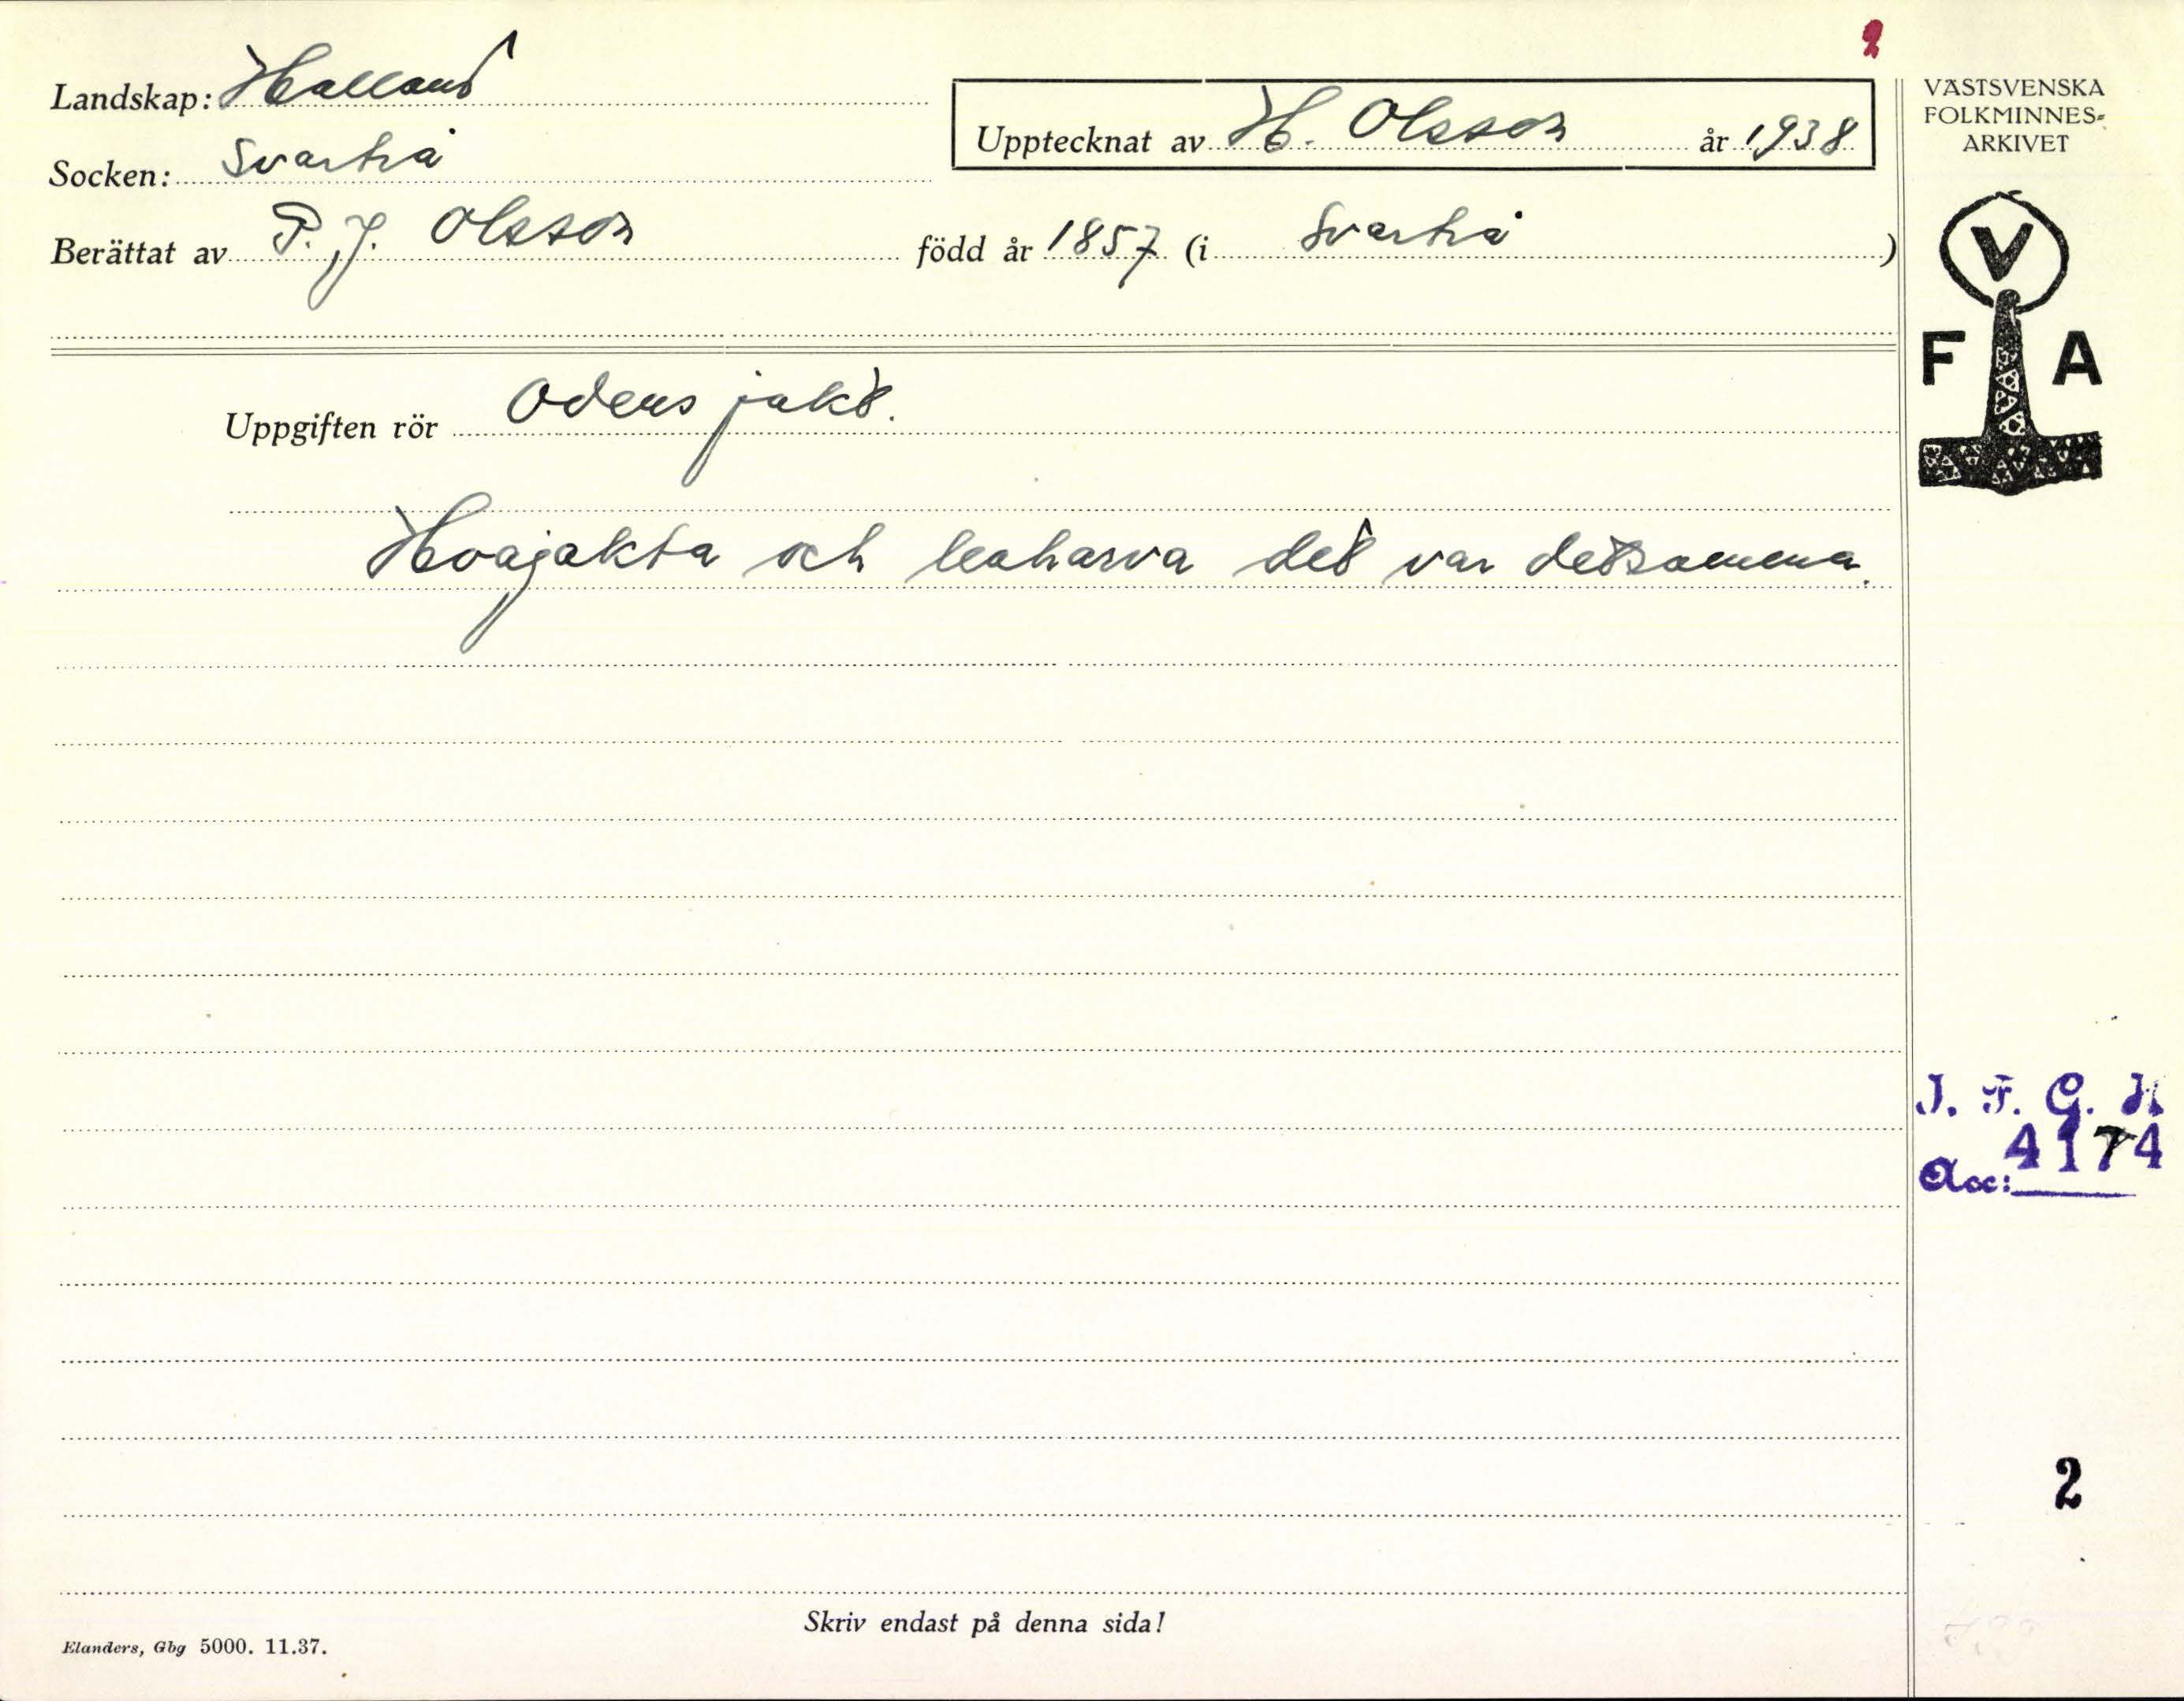 Landskap: Halland
Upptecknat av H. Olsson år 1938
Socken: Svartrå
Berättat av P. J. Olsson född år 1857 (i Svartrå)
Uppgiften rör Odens jakt.
Hoajakta och leaharva det var detsamma.
Skriv endast på denna sida!
Elanders, Gbg 5000. 11.37.
2
VÄSTSVENSKA
FOLKMINNES-
ARKIVET
V
F A
I. F. G. H.
Acc: 4174
2